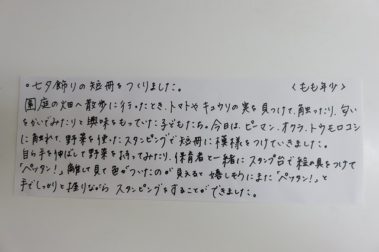 ○七夕飾りの短冊をつくりました。　〈もも年少〉
園庭の畑へ散歩に行ったとき、トマトやキュウリの実を見つけて、触ったり、匂い
をかいでみたりと興味をもっていた子どもたち。今日は、ピーマン、オクラ、トウモロコシ
に触れて、野菜を使ったスタンピングで短冊に模様をつけていきました。
自ら手を伸ばして野菜を持ってみたり、保育者と一緒にスタンプ台で絵の具をつけて
「ペッタン!」離して見て色がついたのが見えると嬉しそうにまた「ペッタン!」と
手でしっかりと握りながらスタンピングをすることができました。